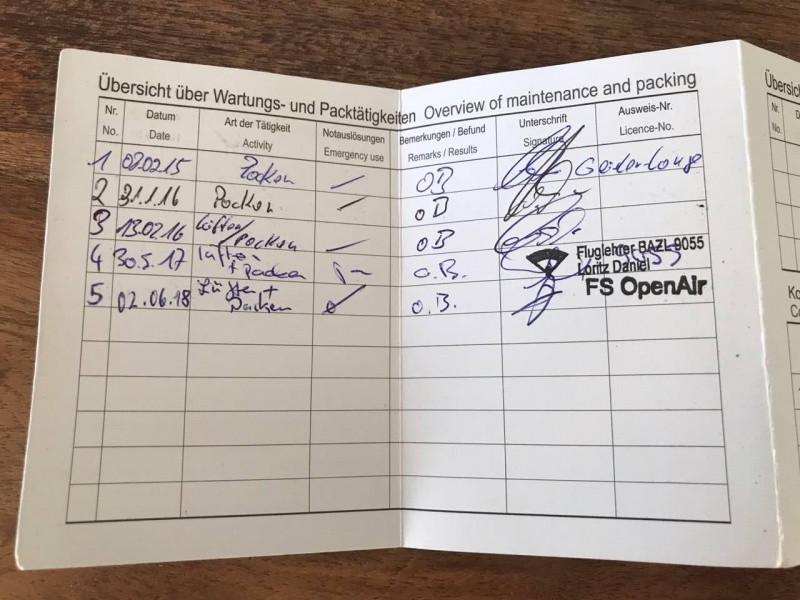 Übersicht über Wartungs- und Packtätigkeiten Overview of maintenance and packing
Nr. Datum Art der Tätigkeit Notauslösungen Bemerkungen / Befund Unterschrift Ausweis-Nr.
No. Date Activity Emergency use Remarks / Results Signature Licence-No.
1 Packen OB
2 31.1.16 Packen OB
3 13.02.16 Lüften
Packen OB
4 30.5.17 Lüften
+ Packen O.B.
5 02.06.18 Lüften +
Packen O.B.
Fluglehrer BAZL 9055
Loritz Daniel
FS OpenAir
Übersic
Nr.
No.
D
Ko
Co